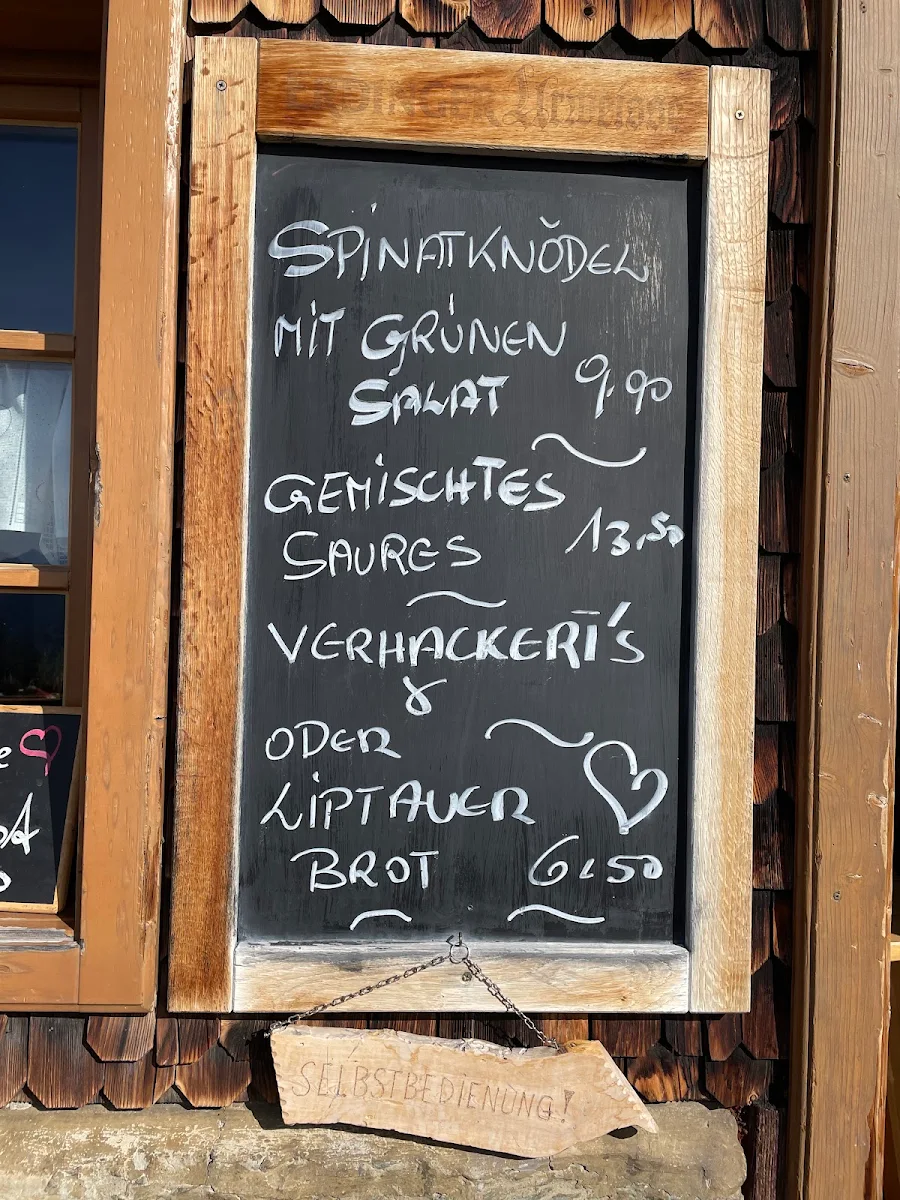 Urweisse
SPINATKNÖDEL
MIT GRÜNEN
SALAT 9,90
GEMISCHTES
SAURES 13,50
VERHACKERT'S
ODER
LIPTAUER
BROT 6,50
SELBSTBEDIENUNG!